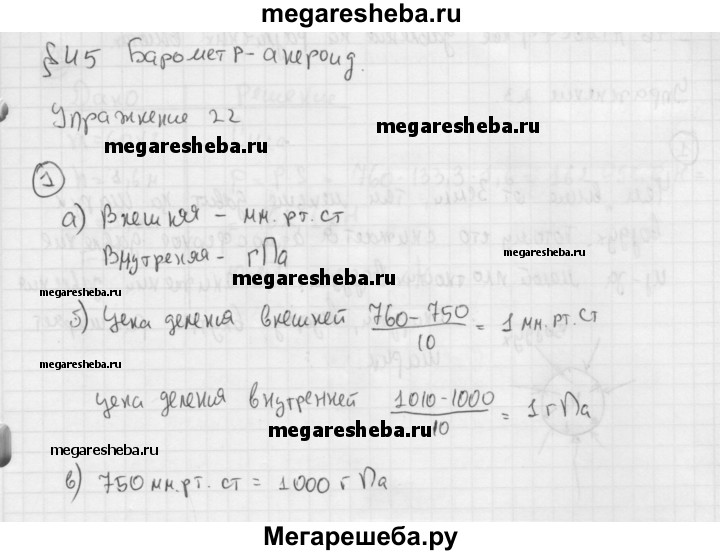 megaresheba.ru
§45 Барометр-анероид.
Упражнение 22
megaresheba.ru
megaresheba.ru
1
а) Внешняя - мм.рт.ст
Внутреняя - гПа
megaresheba.ru
megaresheba.ru
megaresheba.ru
б) Цена деления внешней 760-750/10 = 1 мм.рт.ст
megaresheba.ru
megaresheba.ru
цена деления внутренней 1010-1000/10 = 1 гПа
megaresheba.ru
megaresheba.ru
в) 750 мм.рт.ст = 1000 гПа
megaresheba.ru
Мегарешеба.ру